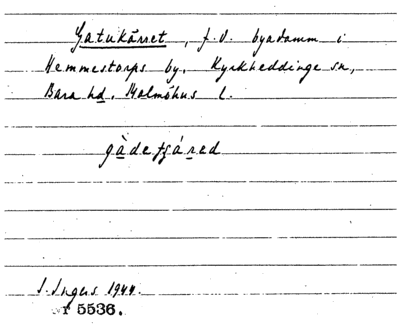 Gatukärret, f.d. byadamm i
Hemmestorps by, Kyrkheddinge sn,
Bara hd. Malmöhus l.
gàdetjáred
I. Ingers 1944.
5536.